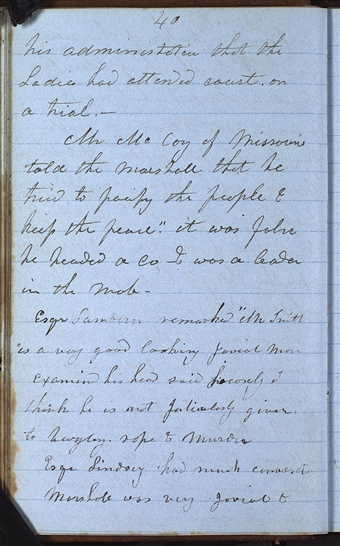 40
his administration that the
Ladies had attended court. on
a trial.—
Mr Mc Coy of Missouri
told the Marshall that he
tried to pacify the people &
keep the peace". it was false
he headed a co & was a leader
in the mob-
Esqr remarked "Mr Smith
is a very good looking jovial man
examin his head said
think he is not particularly given
to burglary. rape & Murder
Esqr Lindsey had much
Marshall was very jovial &